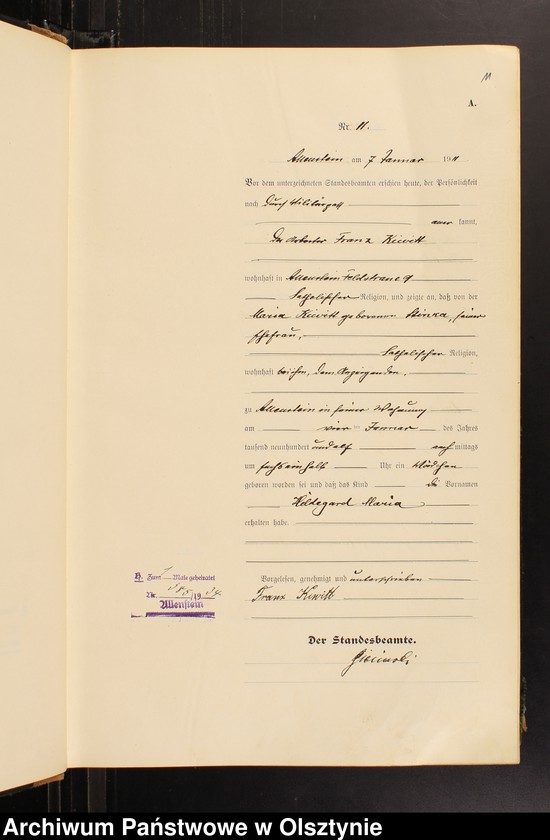 11
A.
Nr. 11.
Allenstein am 7 Januar 1911
Vor dem unterzeichneten Standesbeamten erschien heute, der Persönlichkeit
nach durch
kannt,
Der Arbeiter Franz Kiwitt
wohnhaft in Allenstein Feldstrasse 9
katholischer Religion, und zeigte an, daß von der
Maria Kiwitt geborenen seiner
Ehefrau,
katholischer Religion,
wohnhaft bei ihm, dem Anzeigenden,
zu Allenstein in seiner Wohnung
am vier ten Januar des Jahres
tausend neunhundert und elf nach mittags
um sechs einhalb Uhr ein Mädchen
geboren worden sei und daß das Kind die Vornamen
Hildegard Maria
erhalten habe.
Vorgelesen, genehmigt und unterschrieben
Franz Kiwitt
Der Standesbeamte.
H. Zum 1 Male geheiratet
Nr. /19 34
Allenstein
Archiwum Państwowe w Olsztynie